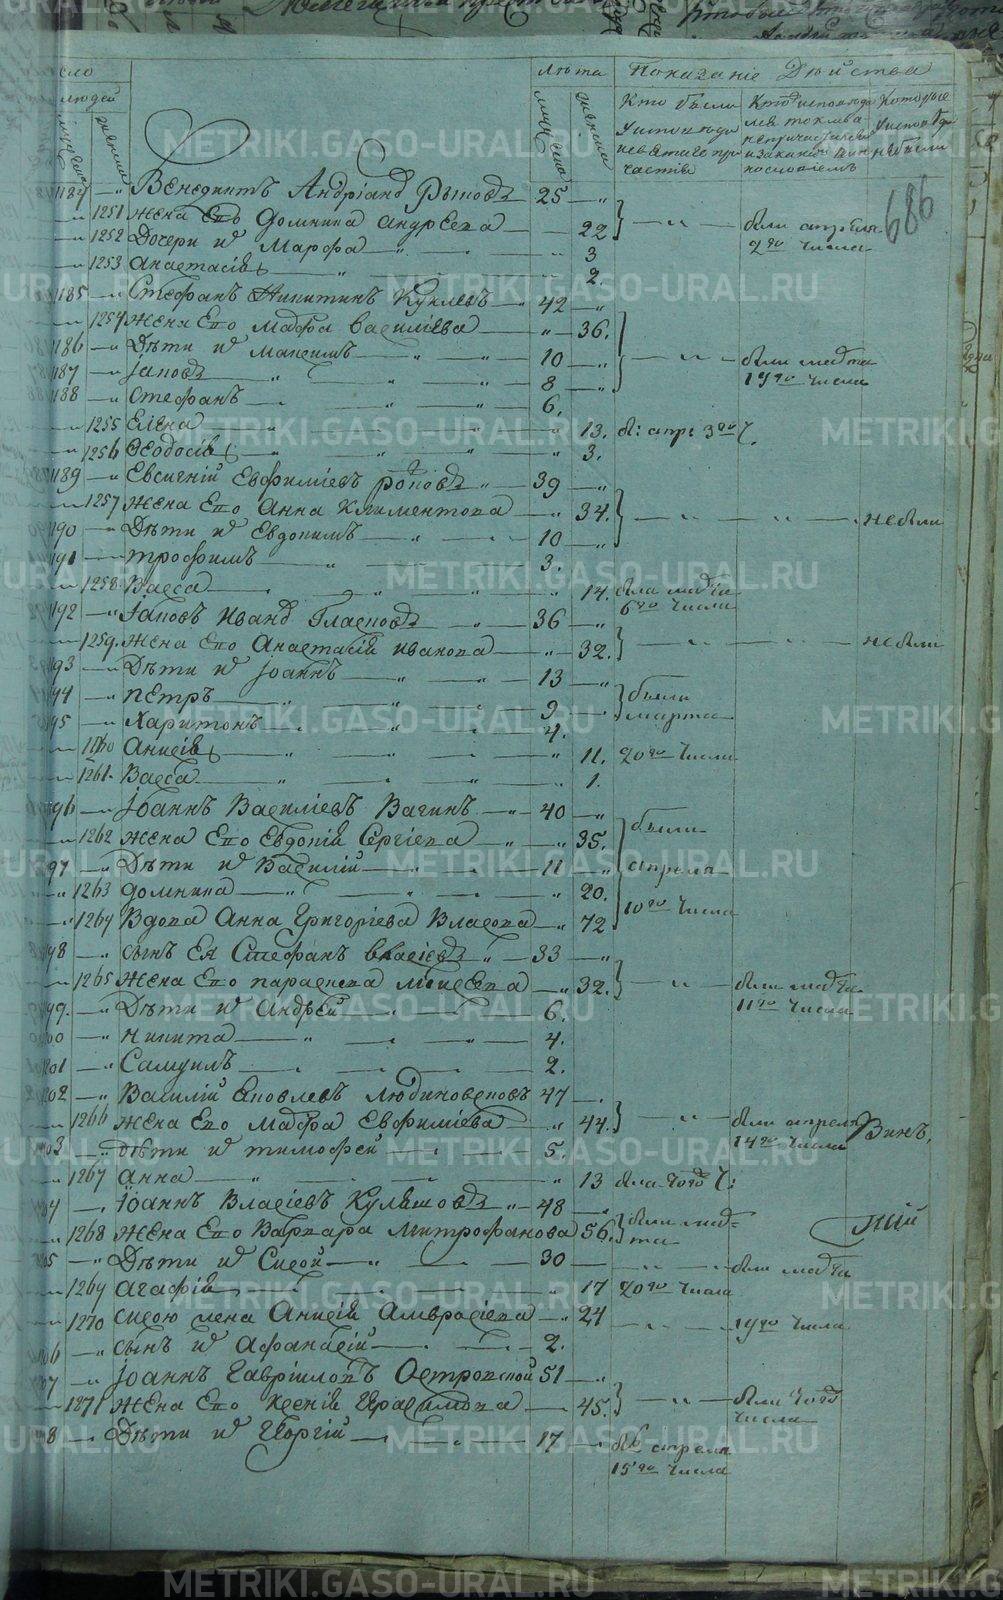 сло
людей
Лѣта
Показанiе Дѣйства
мужска
женска
мужеска
женска
Кто были
у исповѣди
и святаго при
частiя
Которые
у исповѣди
не были
686
1184 Венедиктъ Андрiановъ 25
1251 жена Его Домника Андреева 22
были апреля
2го числа
1252 Дочери их Марфа 3
1253 Анастасiя 2
1185 Стефанъ Никитинъ 42
1254 Жена Его Марфа Василiева 36
1186 Дѣти их Максимъ 10
были марта
19го числа
1187 Iаковъ 8
1188 Стефанъ 6
1255 Елена 13 б: апре 3го ч.
1256 Ѳеодосiя 3
1189 Евсигнiй Евфимiевъ Поповъ 39
1257 Жена Его Анна Климентова 34
не были
1190 Дѣти их Евдокимъ 10
1191 Трофимъ 3
1258 Васса 14 была марта
6го числа
1192 Iаковъ Иванов 36
1259 Жена Его Анастасiя Иванова 32
не были
1193 Дѣти их Iоаннъ 13
1194 Петръ 9
были
марта
1195 Харитонъ 4
1260 Анисiя 11 20го числа
1261 Васса 1
1196 Iоаннъ Василiевъ Вагинъ 40
были
1262 Жена Его Евдокiя Сергiева 35
1197 Дѣти их Василiй 11
апреля
1263 Домника 20
10го числа
1264 Вдова Анна Григорiева Власова 72
1198 сынъ Ея Стефанъ Власiевъ 33
1265 Жена Его Параскева Моисеева 32
были марта
11го числа
1199 Дѣти их Андрей 6
1200 Никита 4
1201 Самуилъ 2
1202 Василiй Яковлевъ Людиновсковъ 47
1266 Жена Его Марфа Евфимiева 44
были апреля
14го числа
Винъ,
1203 Дѣти их Тимофей 5
1267 Анна 13
1204 Iоаннъ Власiевъ Куляшовъ 48
1268 Жена Его Варвара Митрофанова 56
были мар-
та
1205 Дѣти их Сысой 30
были марта
1269 Агафiя 17 20го числа
1270 Сысою жена Анисiя Амвросiева 24
19го числа
1206 сынъ их Афанасiй 2
1207 Iоаннъ Гаврiиловъ Островской 51
1271 Жена Его Ксенiя Герасимова 45
были
числа
1208 Дѣти их Георгiй 17
апреля
15го числа
METRIKI.GASO-URAL.RU